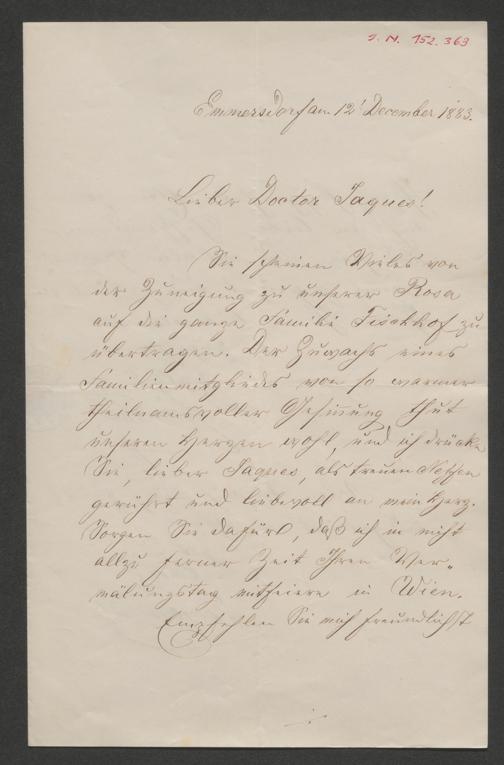 J. N. 152.363
Emmersdorf am 12' December 1883.
Lieber Doctor Jaques!
Sie scheinen Vieles von
der Zuneigung zu unserer Rosa
auf die ganze Familie Fischhof zu
übertragen. Der Zuwachs eines
Familienmitgliedes von so warmer
theilnamsvoller Gesinnung thut
unseren Herzen wohl, und ich drücke
Sie, lieber Jaques, als treuen Neffen
gerührt und liebevoll an mein Herz.
Sorgen Sie dafür, daß ich in nicht
allzu ferner Zeit Ihren Ver-
mälungstag mitfeiere in Wien.
Empfehlen Sie mich freundlichst